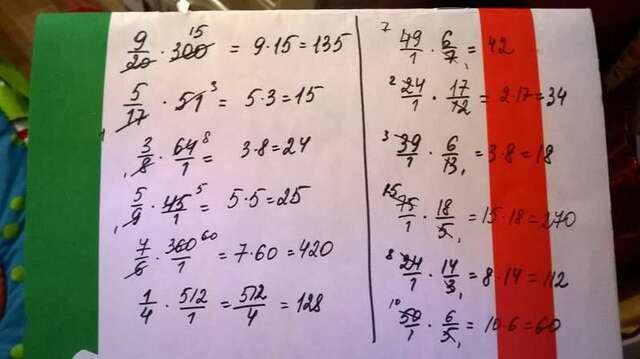 9/20 · 300 15 = 9·15=135
5/17 · 51 3 = 5·3=15
3/8 · 64/1 8 = 3·8=24
5/9 · 45/1 5 = 5·5=25
7/6 · 360/1 60 = 7·60=420
1/4 · 512/1 = 512/4 = 128
7 49/1 · 6/7 1 = 42
2 24/1 · 17/12 = 2·17=34
3 39/1 · 6/13 1 = 3·8=18
15 75/1 · 18/5 1 = 15·18=270
8 24/1 · 14/3 1 = 8·14=112
10 50/1 · 6/5 1 = 10·6=60